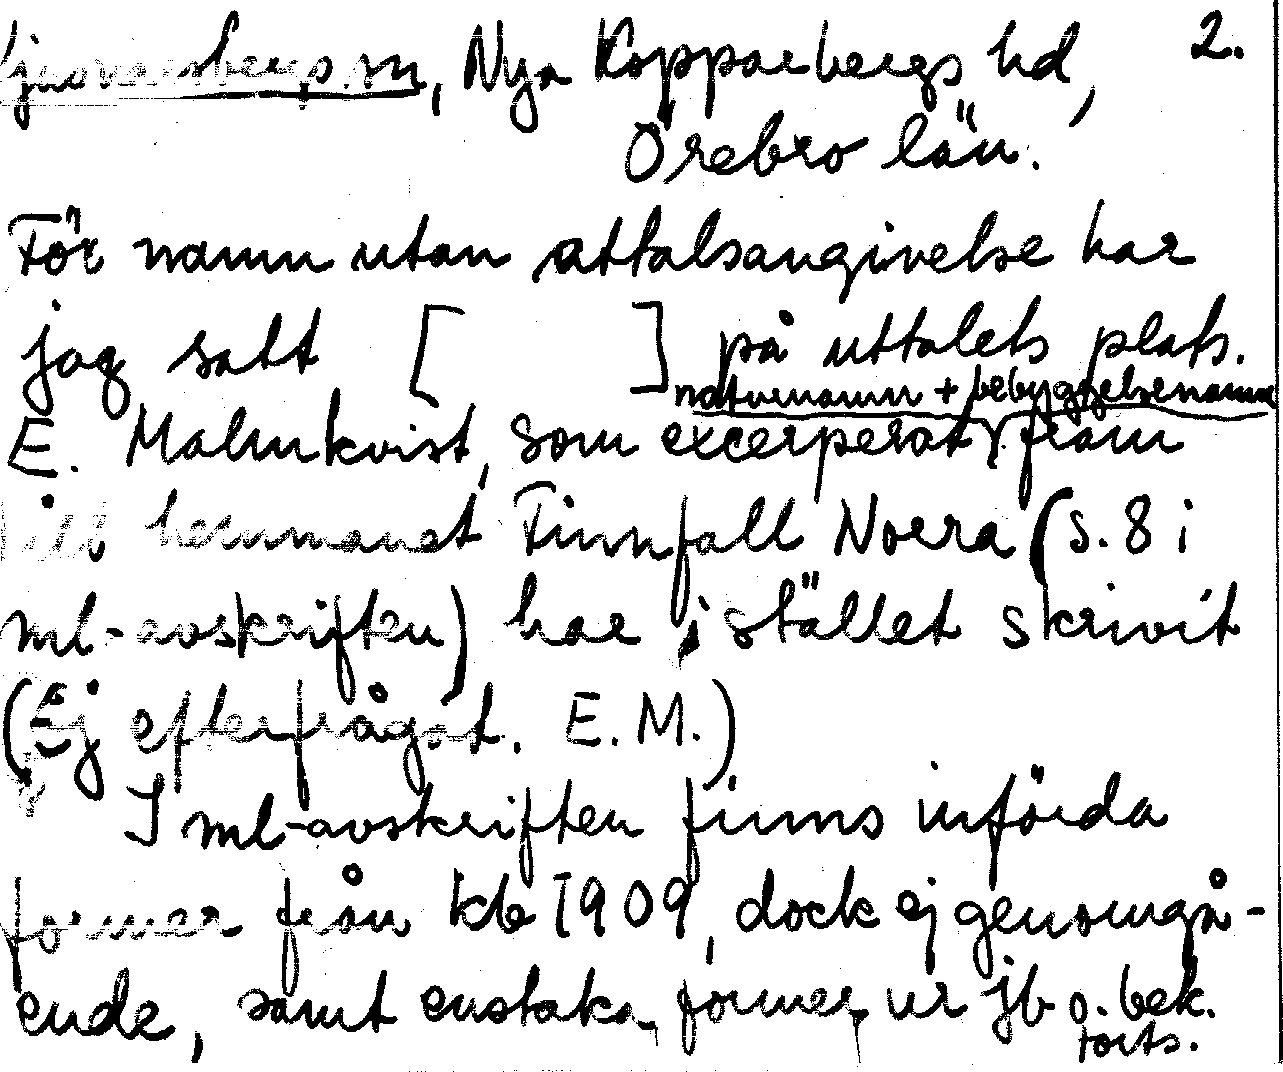 Ljusnarsbergs sn, Nya Kopparbergs hd, 2.
Örebro län.
För namn utan uttalsangivelse har
jag satt [ ] på uttalets plats.
naturnamn + bebyggelsenamn
E. Malmkvist, som excerperat fram
till hemmanet Finnfall Norra (s. 8 i
ml-avskriften) har i stället skrivit
(Ej efterfrågat. E.M.)
I ml-avskriften finns införda
former från kb 1909, dock ej genomgå-
ende, samt enstaka former ur jb o. bek.
forts.